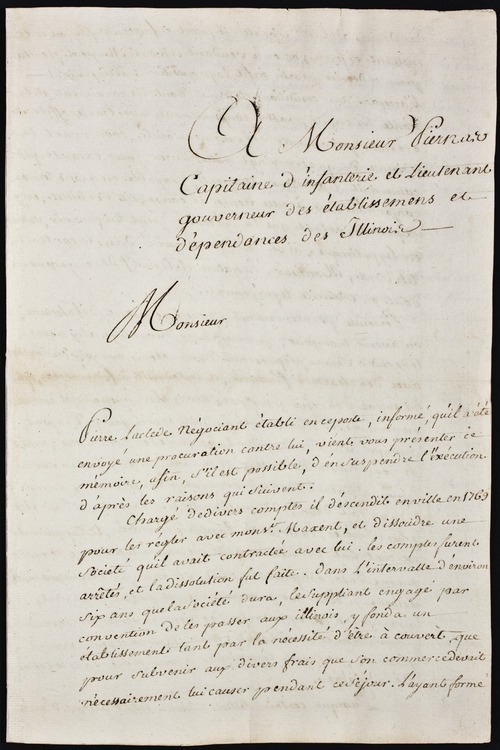 A Monsieur Piernas
Capitaine d'infanterie et Lieutenant
gouverneur des établissemens et
dépendances des Illinois
Monsieur
Pierre Laclede Négociant établi en ce poste, informé, qu'il a été
envoyé une procuration contre lui, vient vous présenter ce
mémoire, afin, s'il est possible, d'en suspendre l'éxécution
d'après les raisons qui suivent.
Chargé de divers comptes il déscendit en ville en 1769
pour les régler avec mons.r Maxent, et dissoudre une
Société qu'il avait contractée avec lui. les comptes furent
arrêtés, et la dissolution fut faite. dans l'intervalle d'environ
six ans que la société dura, le suppliant engagé par
convention de les passer aux illinois, y fonda un
établissement tant par la nécessité d'être à couvert, que
pour subvenir aux divers frais que son commerce devait
nécessairement lui causer pendant ce séjour. L'ayant formé